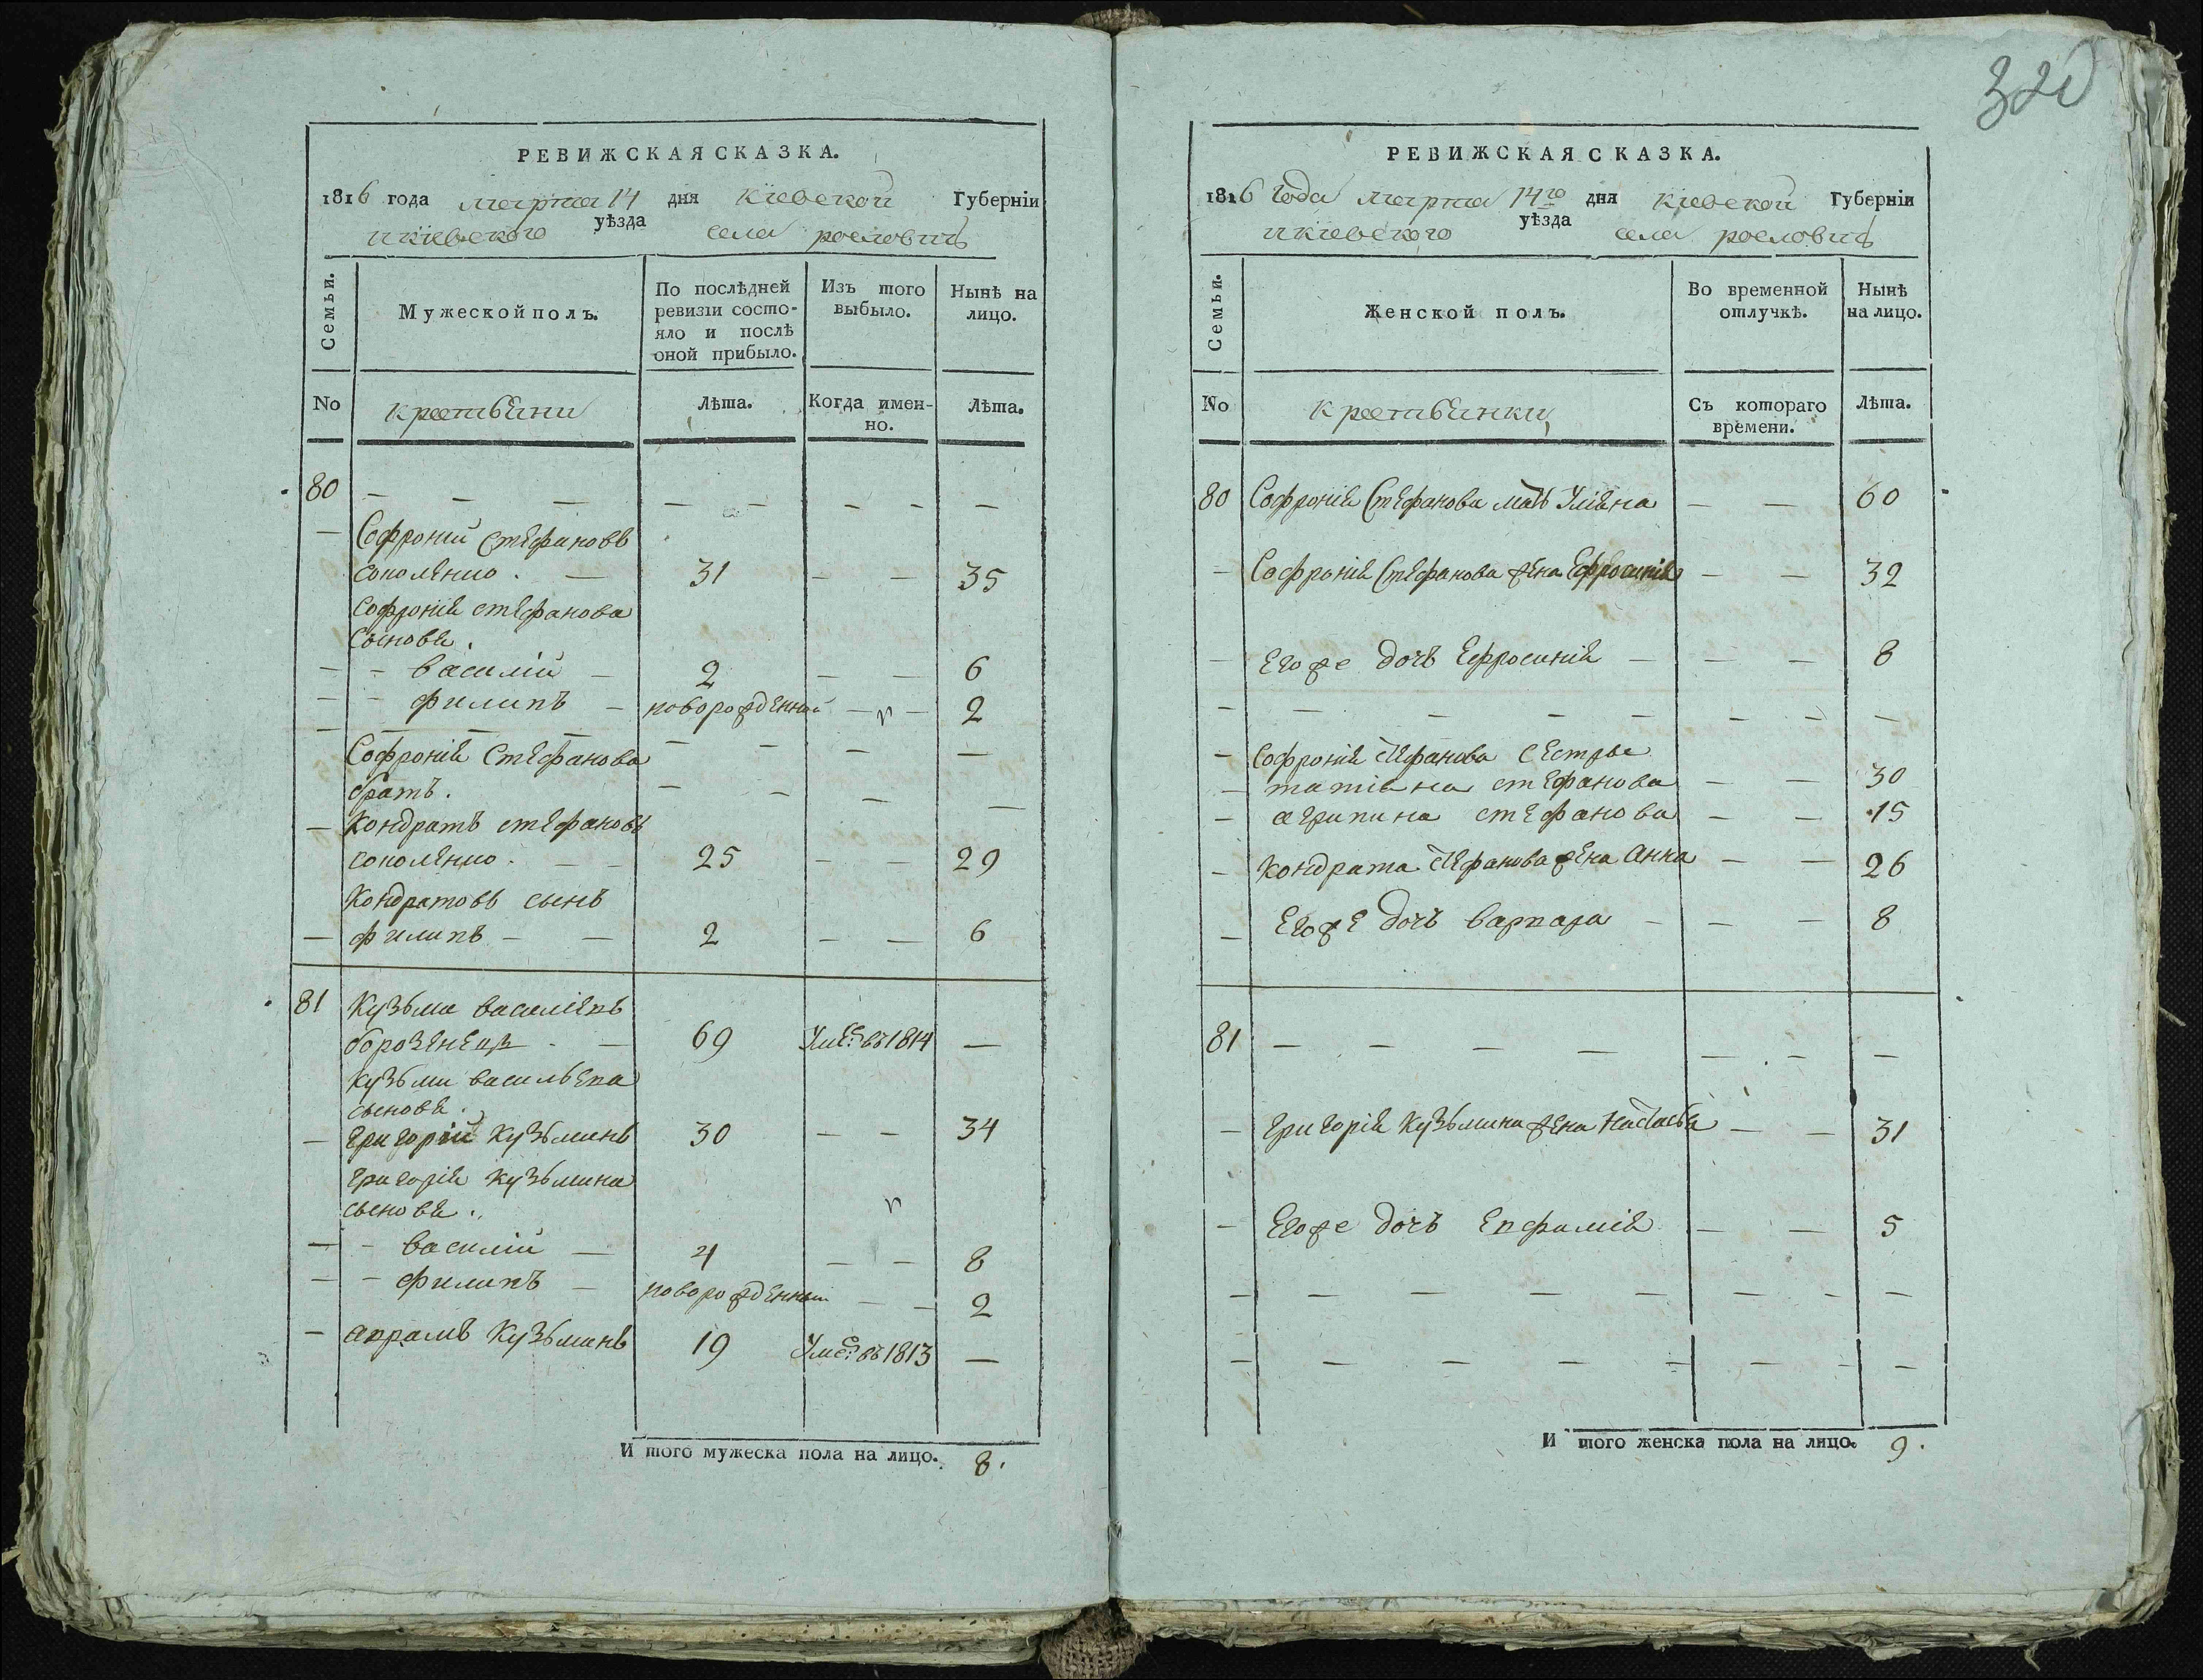 320
РЕВИЖСКАЯ СКАЗКА.
1816 года марта 14 дня Кіевской Губерніи
и кіевского уѣзда села рословичъ
Семьи.
Мужеской полъ.
По послѣдней ревизіи состояло и послѣ оной прибыло.
Изъ того выбыло.
Нынѣ на лицо.
No
крестьяни
Лѣта.
Когда именно.
Лѣта.
80 — — — — — — — —
— Софроний Стефановъ
соколенко . — 31 — — 35
Софронія стефанова
Сыновя .
— — василій — 2 — — 6
— — филипъ — новорожденный — — 2
— — — — — — — —
Софронія Стефанова
братъ . — — — —
— Кондратъ стефановъ
соколенко . — — 25 — — 29
Кондратовъ сынъ
— филипъ — — 2 — — 6
81 Кузьма василіевъ
борозенецъ . — 69 Уме: въ 1814 —
Кузьми васильева
сыновя .
— григорій Кузьминъ 30 — — 34
григорія кузьмина
сыновя .
— — василій — 4 — — 8
— — филипъ — новорожденный — — 2
— аврамъ Кузьминъ 19 Уме: въ 1813 —
И того мужеска пола на лицо. 8.
РЕВИЖСКАЯ СКАЗКА.
1816 года марта 14го дня Кіевской Губерніи
и кіевского уѣзда села рословичъ
Семьи.
Женской полъ.
Во временной отлучкѣ.
Нынѣ на лицо.
No
крестьянки
Съ котораго времени.
Лѣта.
80 Софронія Стефанова мать Уляна — — 60
— Софронія Стефанова жена Ефросинія — — 32
— Егоже дочъ Ефросинія — — — 8
— — — — — — — —
— Софронія Стефанова сестры
— татіяна стефанова — — 30
— агрипина стефанова — — 15
— Кондрата Стефанова жена Анна — — 26
— Егоже дочъ варвара — — — 8
81 — — — — — — —
— григорія Кузьмина жена Настасья — — 31
— Егоже дочъ Евфимія — — 5
— — — — — — — — —
— — — — — — — —
И того женска пола на лицо. 9.